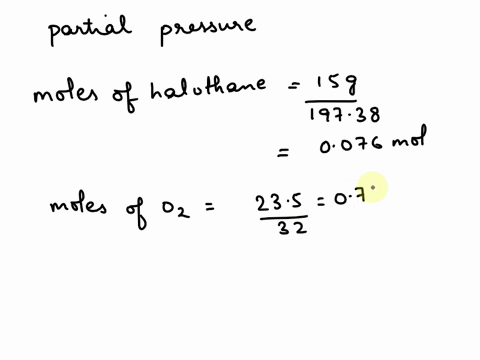 partial pressure
moles of halothane = 15g / 197.38
= 0.076 mol
moles of O2 = 23.5 / 32 = 0.7